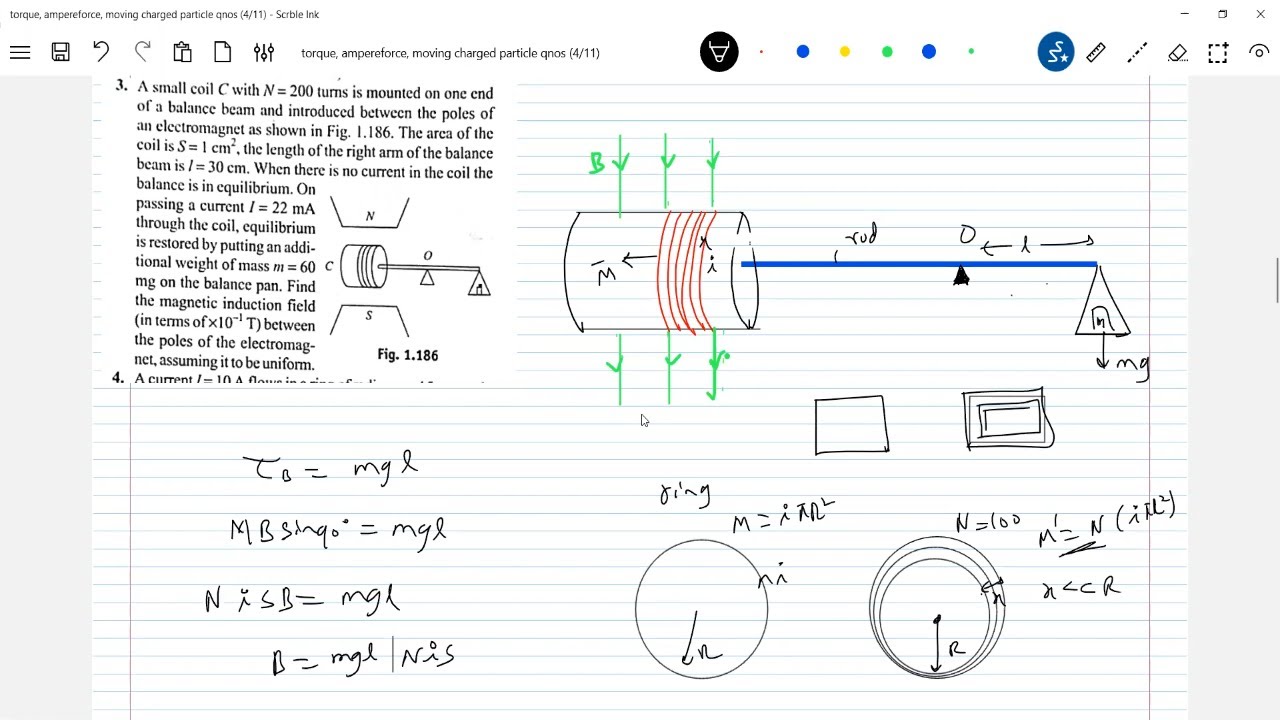 torque, ampereforce, moving charged particle qnos (4/11) - Scrble Ink
torque, ampereforce, moving charged particle qnos (4/11)
3. A small coil C with N = 200 turns is mounted on one end
of a balance beam and introduced between the poles of
an electromagnet as shown in Fig. 1.186. The area of the
coil is S = 1 cm², the length of the right arm of the balance
beam is l = 30 cm. When there is no current in the coil the
balance is in equilibrium. On
passing a current I = 22 mA
through the coil, equilibrium
is restored by putting an addi-
tional weight of mass m = 60
mg on the balance pan. Find
the magnetic induction field
(in terms of ×10⁻¹ T) between
the poles of the electromag-
net, assuming it to be uniform.
N
C
O
S
Fig. 1.186
4. A current I = 10 A flows in a ring of radius
B
M
i
rod
O
l
m
mg
τB = mgl
MB sin90° = mgl
NiSB = mgl
B = mgl | NiS
ring
M = iπR²
i
R
N=100
M' = N (iπR²)
x << R
x
R